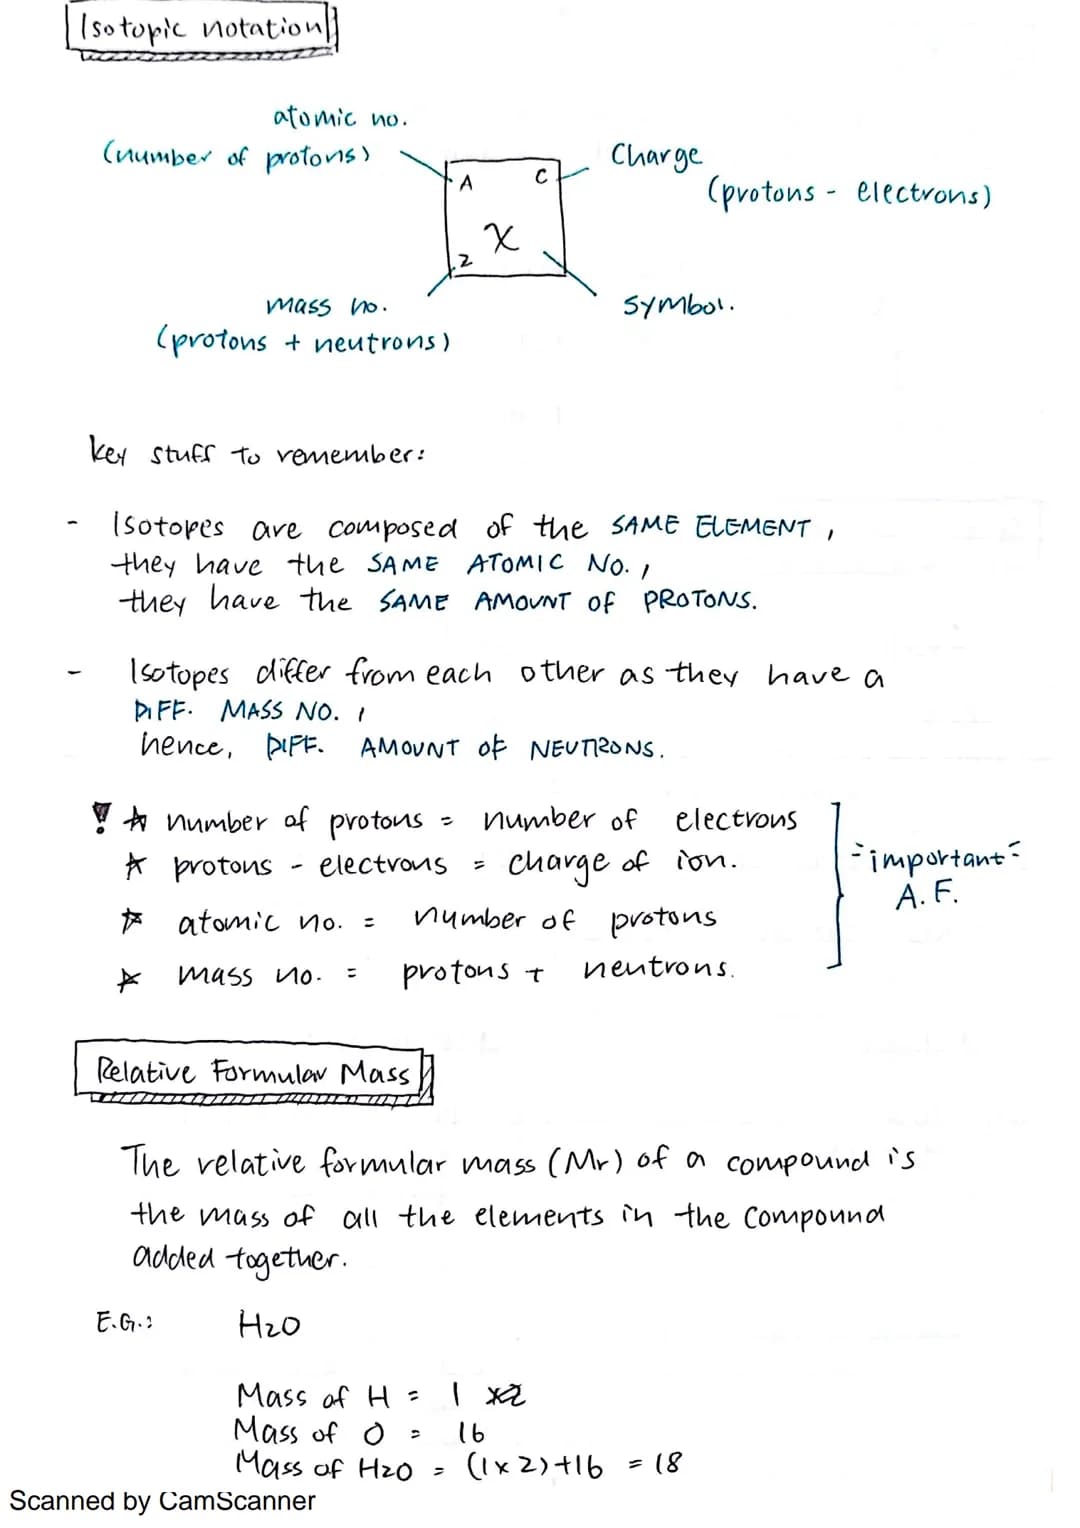 Isotopic notation
atomic no.
(number of protons)
A
C
Charge
(protons - electrons)
X
Z
mass no.
(protons + neutrons)
symbol.
key stuff to remember:
- Isotopes are composed of the SAME ELEMENT,
they have the SAME ATOMIC NO.,
they have the SAME AMOUNT OF PROTONS.
- Isotopes differ from each other as they have a
DIFF. MASS NO.,
hence, DIFF. AMOUNT OF NEUTRONS.
! ☆ number of protons = number of electrons
☆ protons - electrons = charge of ion.
☆ atomic no. = number of protons
☆ mass no. = protons + neutrons.
- important -
A.F.
Relative Formular Mass
The relative formular mass (Mr) of a compound is
the mass of all the elements in the compound
added together.
E.G.: H2O
Mass of H = 1 x2
Mass of O = 16
Mass of H2O = (1x2)+16 = 18
Scanned by CamScanner